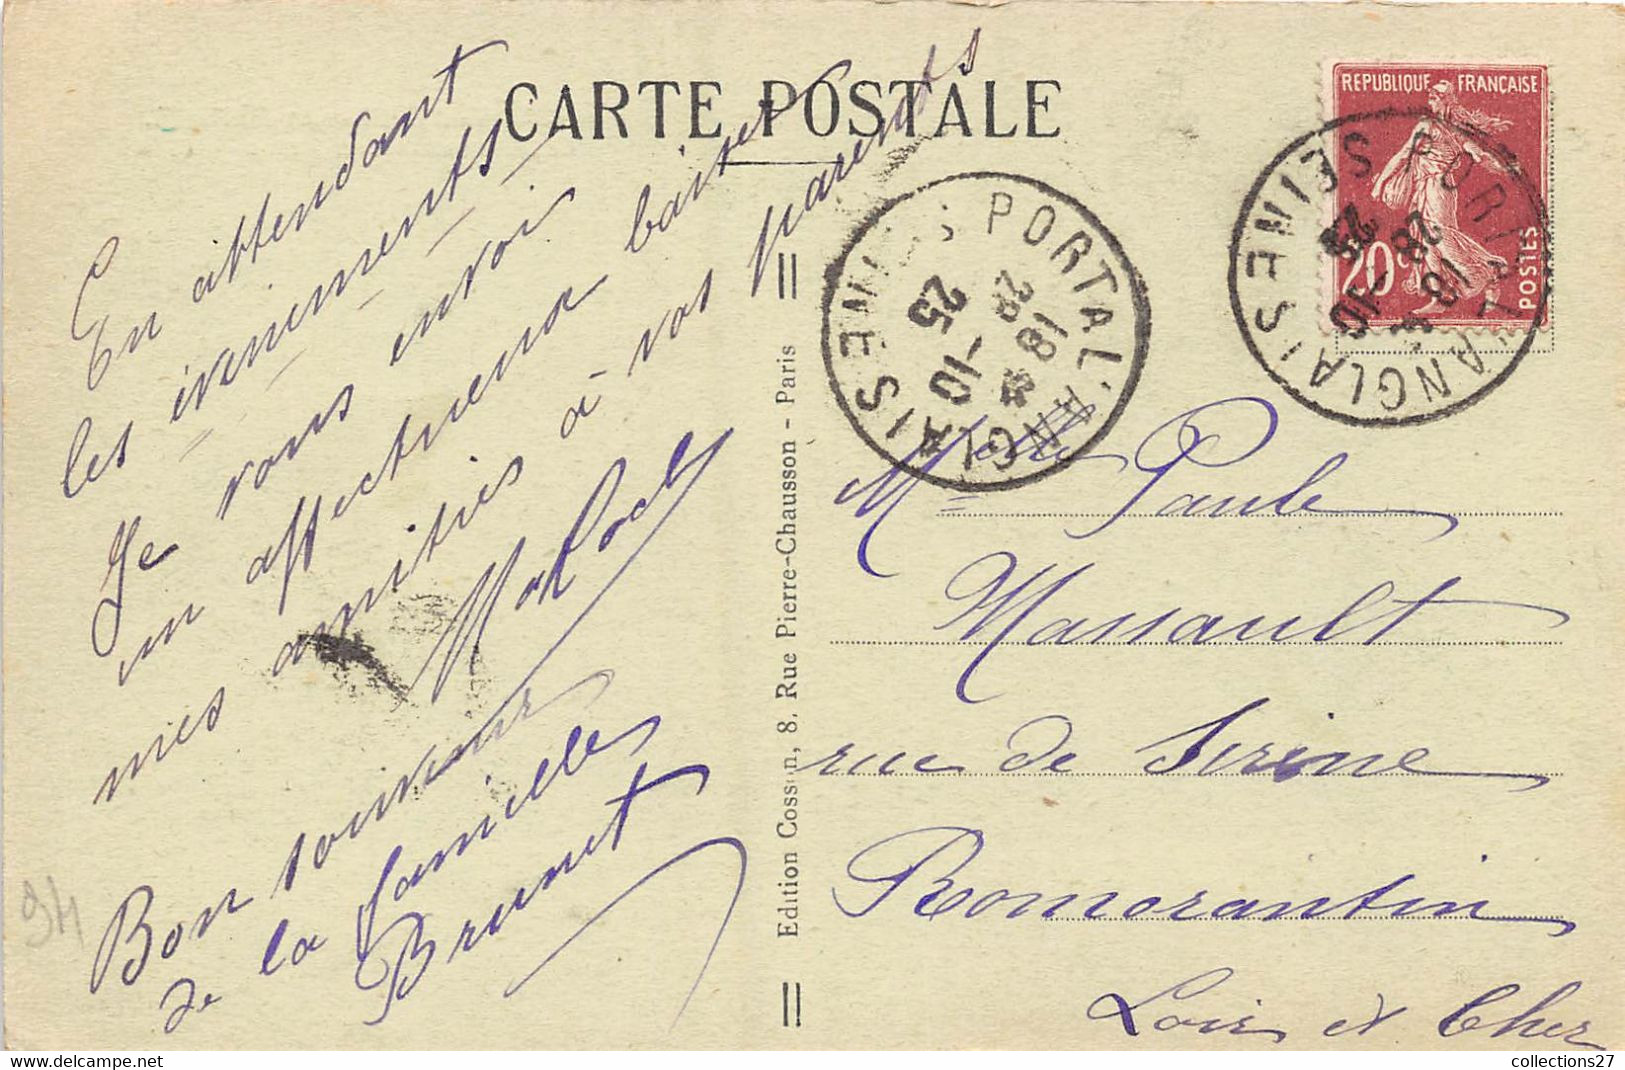 CARTE POSTALE
En attendant
les évenements
Je vous envoi
un affectueux baiser
mes amitiés à vos parents
Bon souvenir
de la famille
Brunet
Edition Cosson, 8, Rue Pierre-Chausson - Paris
REPUBLIQUE FRANÇAISE
20c
POSTES
PORT A L'ANGLAIS SEINE
18 28
25 -10
PORT A L'ANGLAIS SEINE
18 28
25 -10
Melle Paule
Massault
rue de Sirène
Romorantin
Loir et Cher
94
collections27